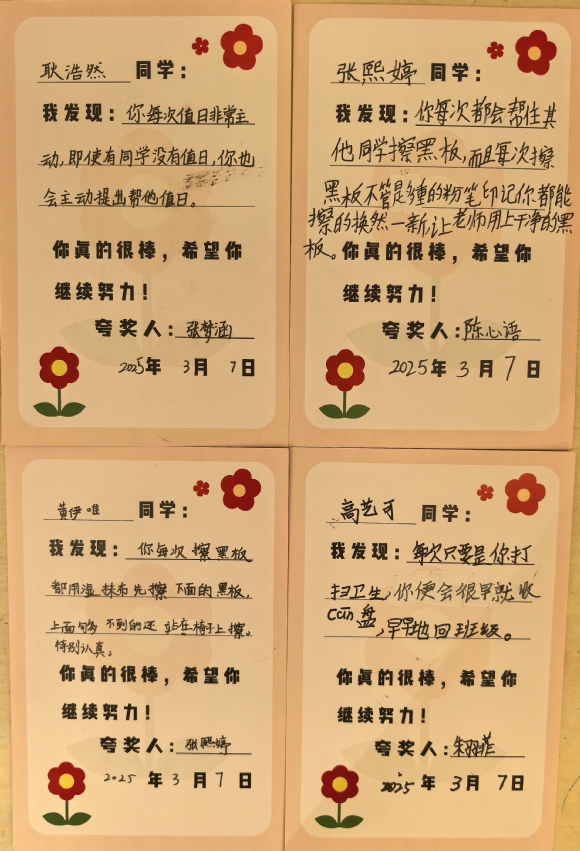 耿浩然 同学：
我发现：你每次值日非常主
动，即使有同学没有值日，你也
会主动提出帮他值日。
你真的很棒，希望你
继续努力！
夸奖人：张梦涵
2025年 3月 7日
张熙婷 同学：
我发现：你每次都会帮住其
他同学擦黑板，而且每次擦
黑板不管是 的粉笔印记你都能
擦的换然一新，让老师用上干净的黑
板。
你真的很棒，希望你
继续努力！
夸奖人：陈心语
2025年 3月 7日
黄伊唯 同学：
我发现：你每次擦黑板
都用湿抹布先擦下面的黑板，
上面够不到的还站在椅子上擦。
特别认真，
你真的很棒，希望你
继续努力！
夸奖人：张熙婷
2025年 3月 7日
高艺可 同学：
我发现：每次只要是你打
扫卫生，你便会很早就收
cān盘，早早地回班级。
你真的很棒，希望你
继续努力！
夸奖人：朱羽菲
2025年 3月 7日